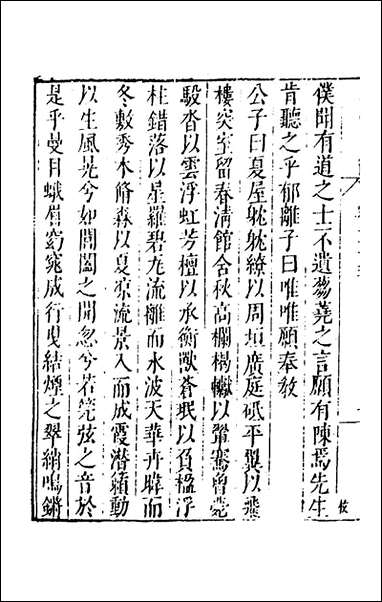 僕聞有道之士不遺芻蕘之言願有陳焉先生
肯聽之乎郁離子曰唯唯願奉教
公子曰夏屋耽耽繚以周垣廣庭砥平翼以飛
樓突室留春清館含秋高欄楬𣠽以鞏騫曾甍
馺沓以雲浮虹芳檀以承衡獸蒼珉以負楹浮
柱錯落以星羅碧瓦流離而水波天華卉暐而
冬敷秀木脩森以夏凉流景入而成霞潛籟動
以生風晃兮如閶闔之開忽兮若筦弦之音於
是乎曼目蛾眉窈窕成行曳結煙之翠綃鳴鏘